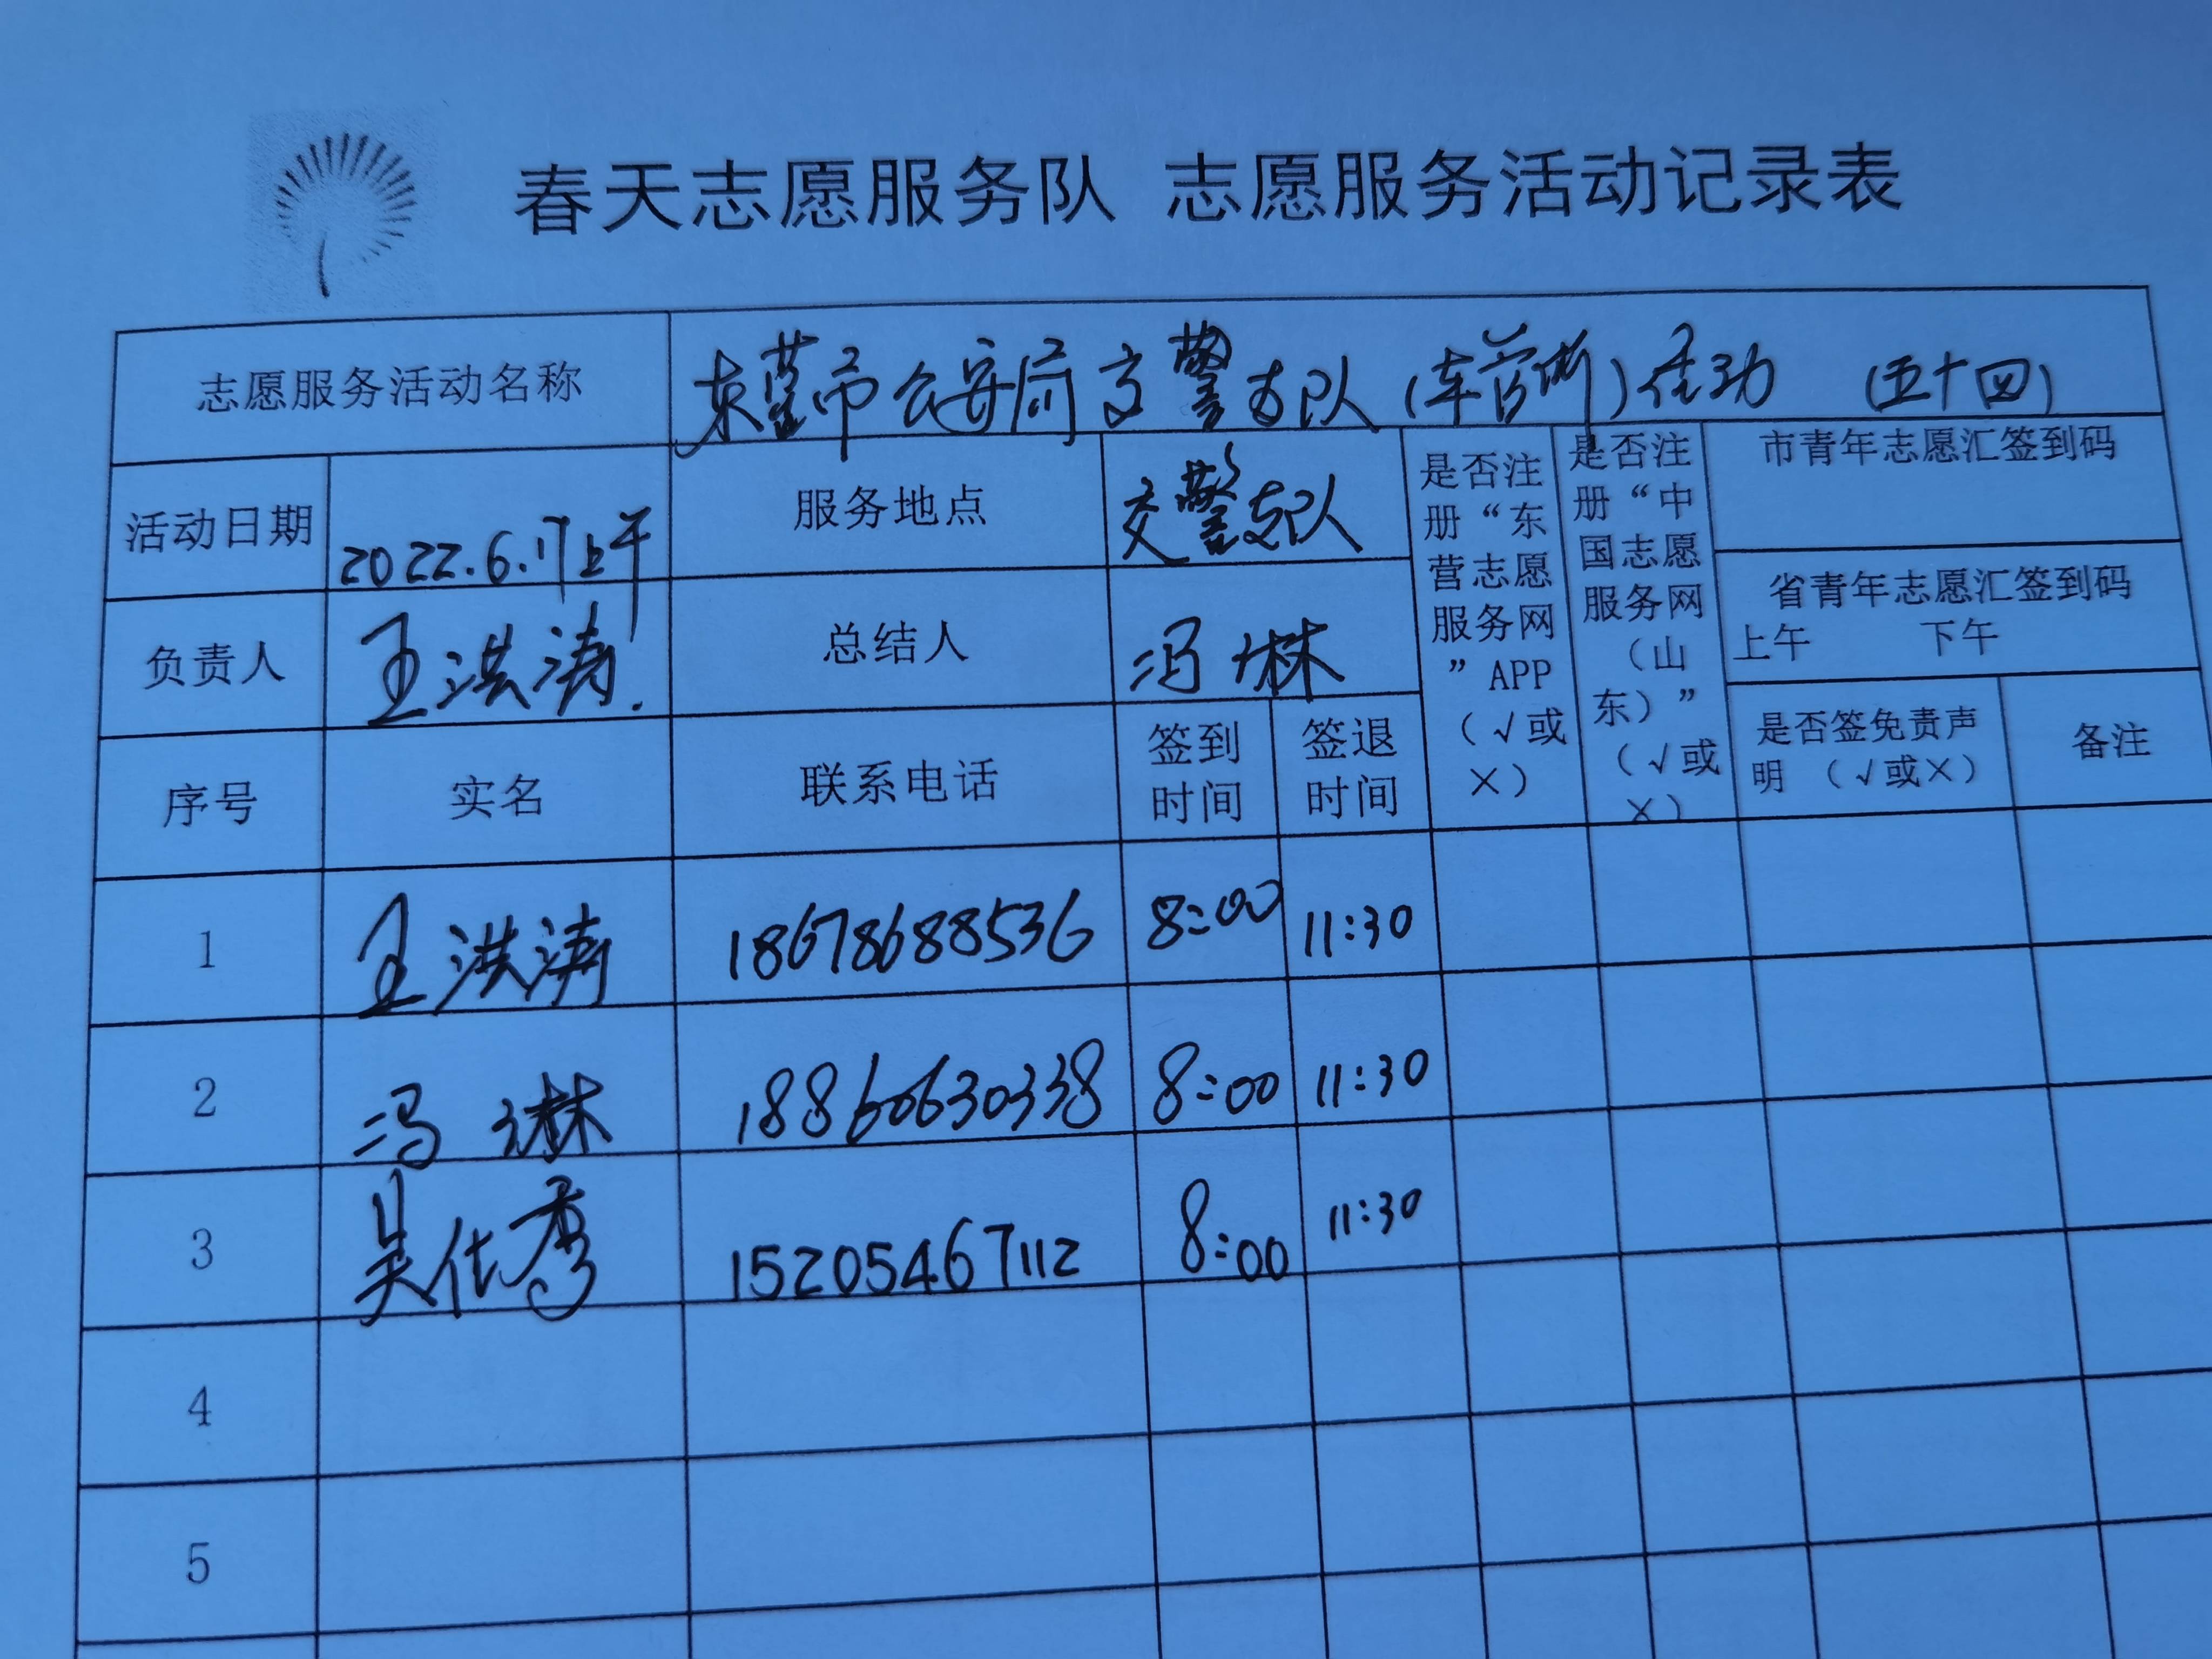 春天志愿服务队 志愿服务活动记录表
志愿服务活动名称 东营市公安局交警支队(车管所)活动 (五十四)
活动日期 2022.6.17上午 服务地点 交警支队
是否注册“东营志愿服务网”APP（√或×）
是否注册“中国志愿服务网（山东）”（√或×）
市青年志愿汇签到码
省青年志愿汇签到码
上午 下午
负责人 王洪涛. 总结人 冯琳
是否签免责声明 （√或×） 备注
序号 实名 联系电话 签到时间 签退时间
1 王洪涛 18678688536 8:00 11:30
2 冯琳 18860630338 8:00 11:30
3 吴仕秀 15205467112 8:00 11:30
4
5